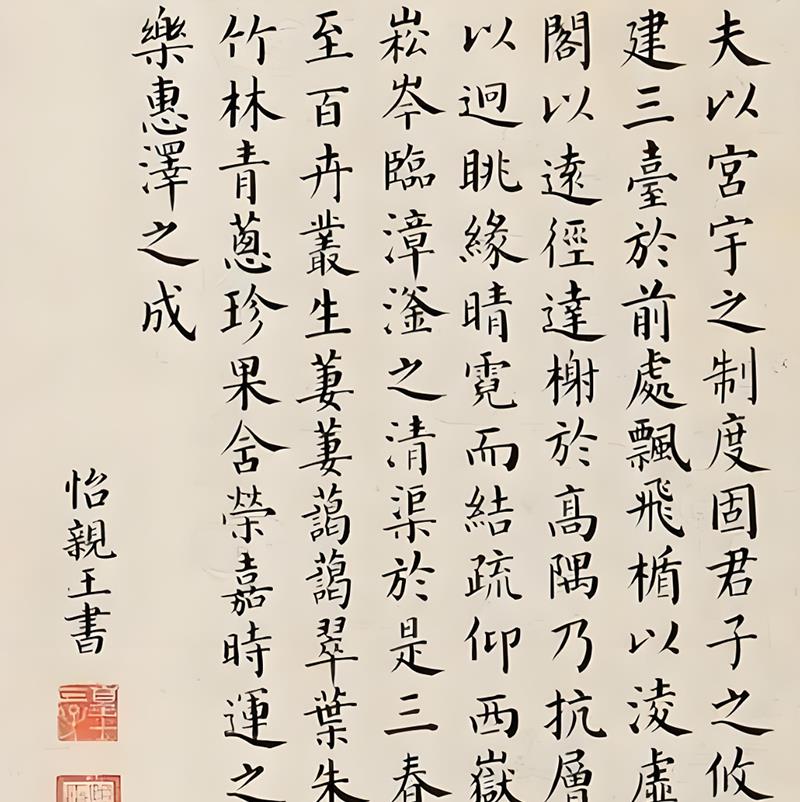 夫以宮宇之制度固君子之攸
建三臺於前處飄飛楯以淩虛
閣以遠徑達榭於高隅乃抗層
以迥眺緣晴霓而結疏仰西嶽
崧岑臨漳滏之清渠於是三春
至百卉叢生萋萋藹藹翠葉朱
竹林青蔥珍果含榮嘉時運之
樂惠澤之成
怡親王書